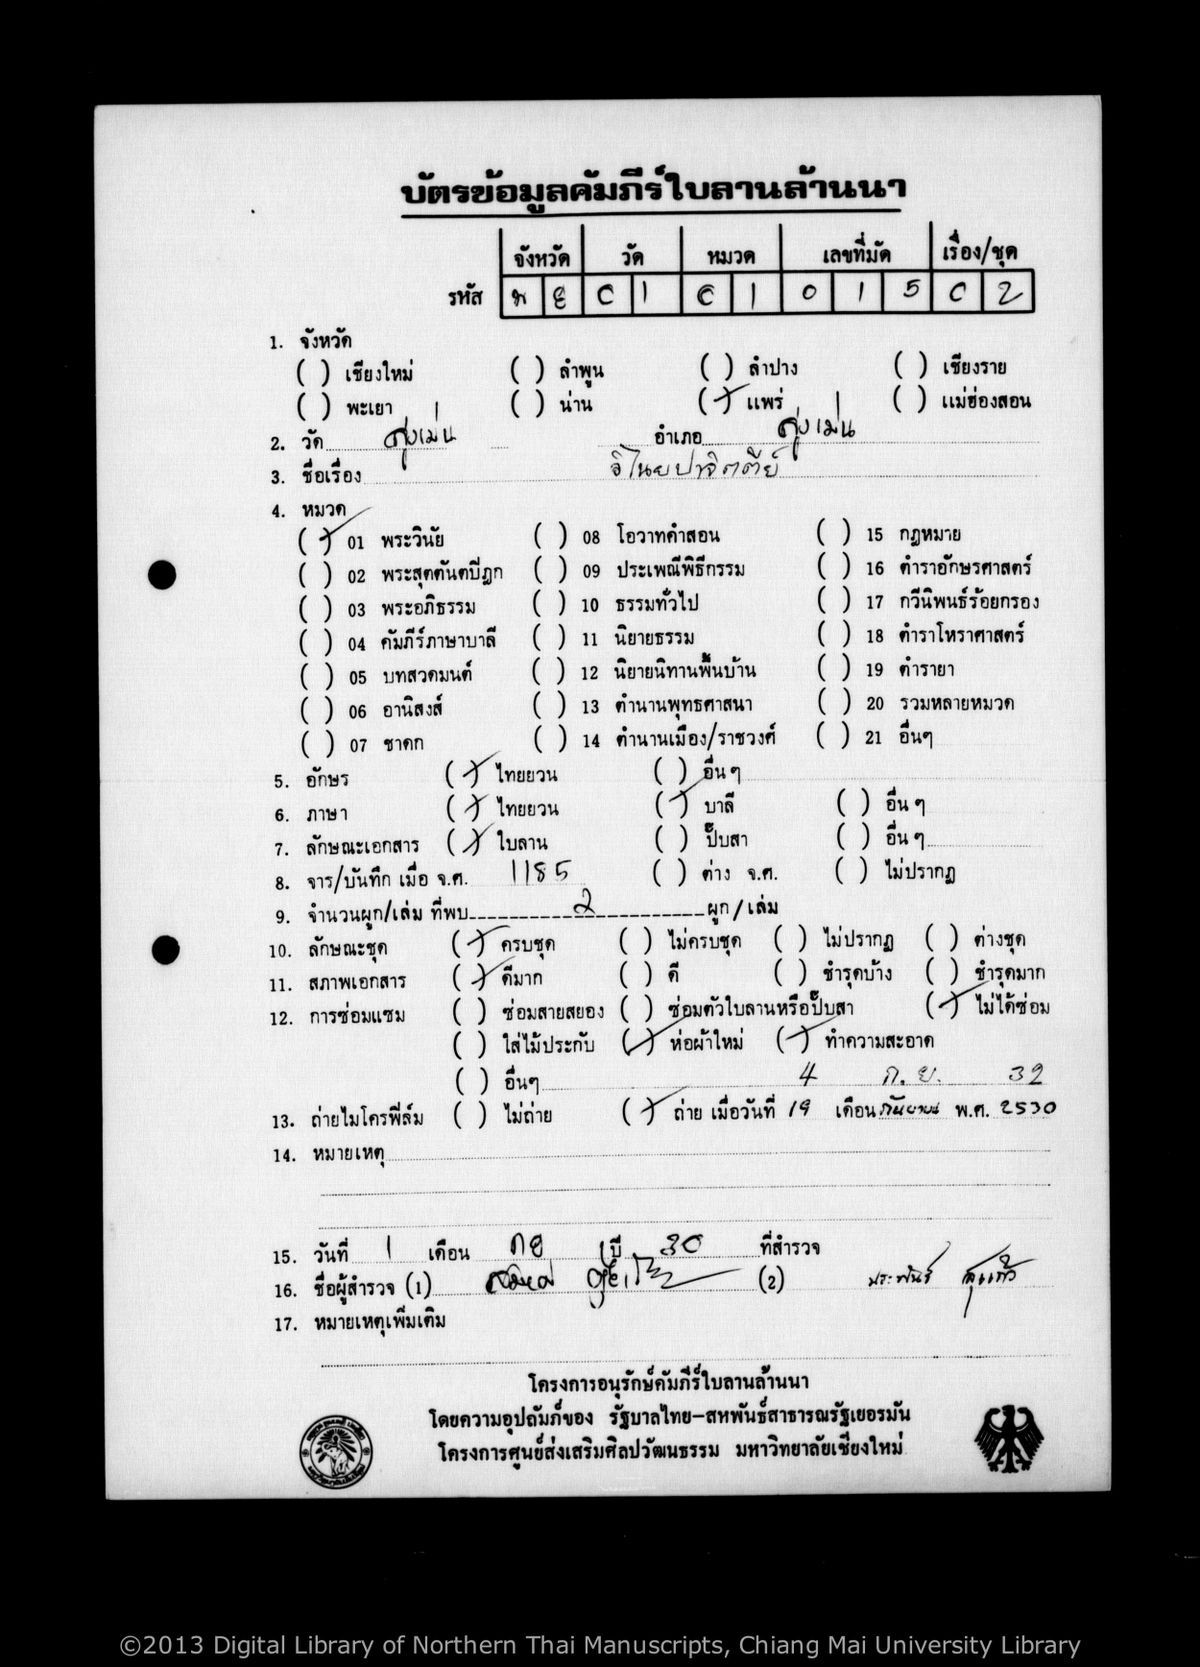 บัตรข้อมูลคัมภีร์ใบลานล้านนา
จังหวัด วัด หมวด เลขที่มัด เรื่อง/ชุด
รหัส พ 01 01 015 02
1. จังหวัด
( ) เชียงใหม่ ( ) ลำพูน ( ) ลำปาง ( ) เชียงราย
( ) พะเยา ( ) น่าน (/) แพร่ ( ) แม่ฮ่องสอน
2. วัด สูงเม่น อำเภอ สูงเม่น
3. ชื่อเรื่อง วิไนยปาจิตตีย์
4. หมวด
(/) 01 พระวินัย ( ) 08 โอวาทคำสอน ( ) 15 กฎหมาย
( ) 02 พระสุตตันตปิฎก ( ) 09 ประเพณีพิธีกรรม ( ) 16 ตำราอักษรศาสตร์
( ) 03 พระอภิธรรม ( ) 10 ธรรมทั่วไป ( ) 17 กวีนิพนธ์ร้อยกรอง
( ) 04 คัมภีร์ภาษาบาลี ( ) 11 นิยายธรรม ( ) 18 ตำราโหราศาสตร์
( ) 05 บทสวดมนต์ ( ) 12 นิยายนิทานพื้นบ้าน ( ) 19 ตำรายา
( ) 06 อานิสงส์ ( ) 13 ตำนานพุทธศาสนา ( ) 20 รวมหลายหมวด
( ) 07 ชาดก ( ) 14 ตำนานเมือง/ราชวงศ์ ( ) 21 อื่นๆ
5. อักษร (/) ไทยยวน ( ) อื่นๆ
6. ภาษา (/) ไทยยวน (/) บาลี ( ) อื่นๆ
7. ลักษณะเอกสาร (/) ใบลาน ( ) ปั๊บสา ( ) อื่นๆ
8. จาร/บันทึก เมื่อ จ.ศ. 1185 ( ) ต่าง จ.ศ. ( ) ไม่ปรากฏ
9. จำนวนผูก/เล่ม ที่พบ 2 ผูก/เล่ม
10. ลักษณะชุด (/) ครบชุด ( ) ไม่ครบชุด ( ) ไม่ปรากฏ ( ) ต่างชุด
11. สภาพเอกสาร (/) ดีมาก ( ) ดี ( ) ชำรุดบ้าง ( ) ชำรุดมาก
12. การซ่อมแซม ( ) ซ่อมสายสยอง ( ) ซ่อมตัวใบลานหรือปั๊บสา (/) ไม่ได้ซ่อม
( ) ใส่ไม้ประกับ (/) ห่อผ้าใหม่ (/) ทำความสะอาด
( ) อื่นๆ 4 ก.ย. 32
13. ถ่ายไมโครฟิล์ม ( ) ไม่ถ่าย (/) ถ่าย เมื่อวันที่ 19 เดือน กันยายน พ.ศ. 2530
14. หมายเหตุ
15. วันที่ 1 เดือน กย ปี 30 ที่สำรวจ
16. ชื่อผู้สำรวจ (1) (2) ประพันธ์
17. หมายเหตุเพิ่มเติม
โครงการอนุรักษ์คัมภีร์ใบลานล้านนา
โดยความอุปถัมภ์ของ รัฐบาลไทย-สหพันธ์สาธารณรัฐเยอรมัน
โครงการศูนย์ส่งเสริมศิลปวัฒนธรรม มหาวิทยาลัยเชียงใหม่
©2013 Digital Library of Northern Thai Manuscripts, Chiang Mai University Library